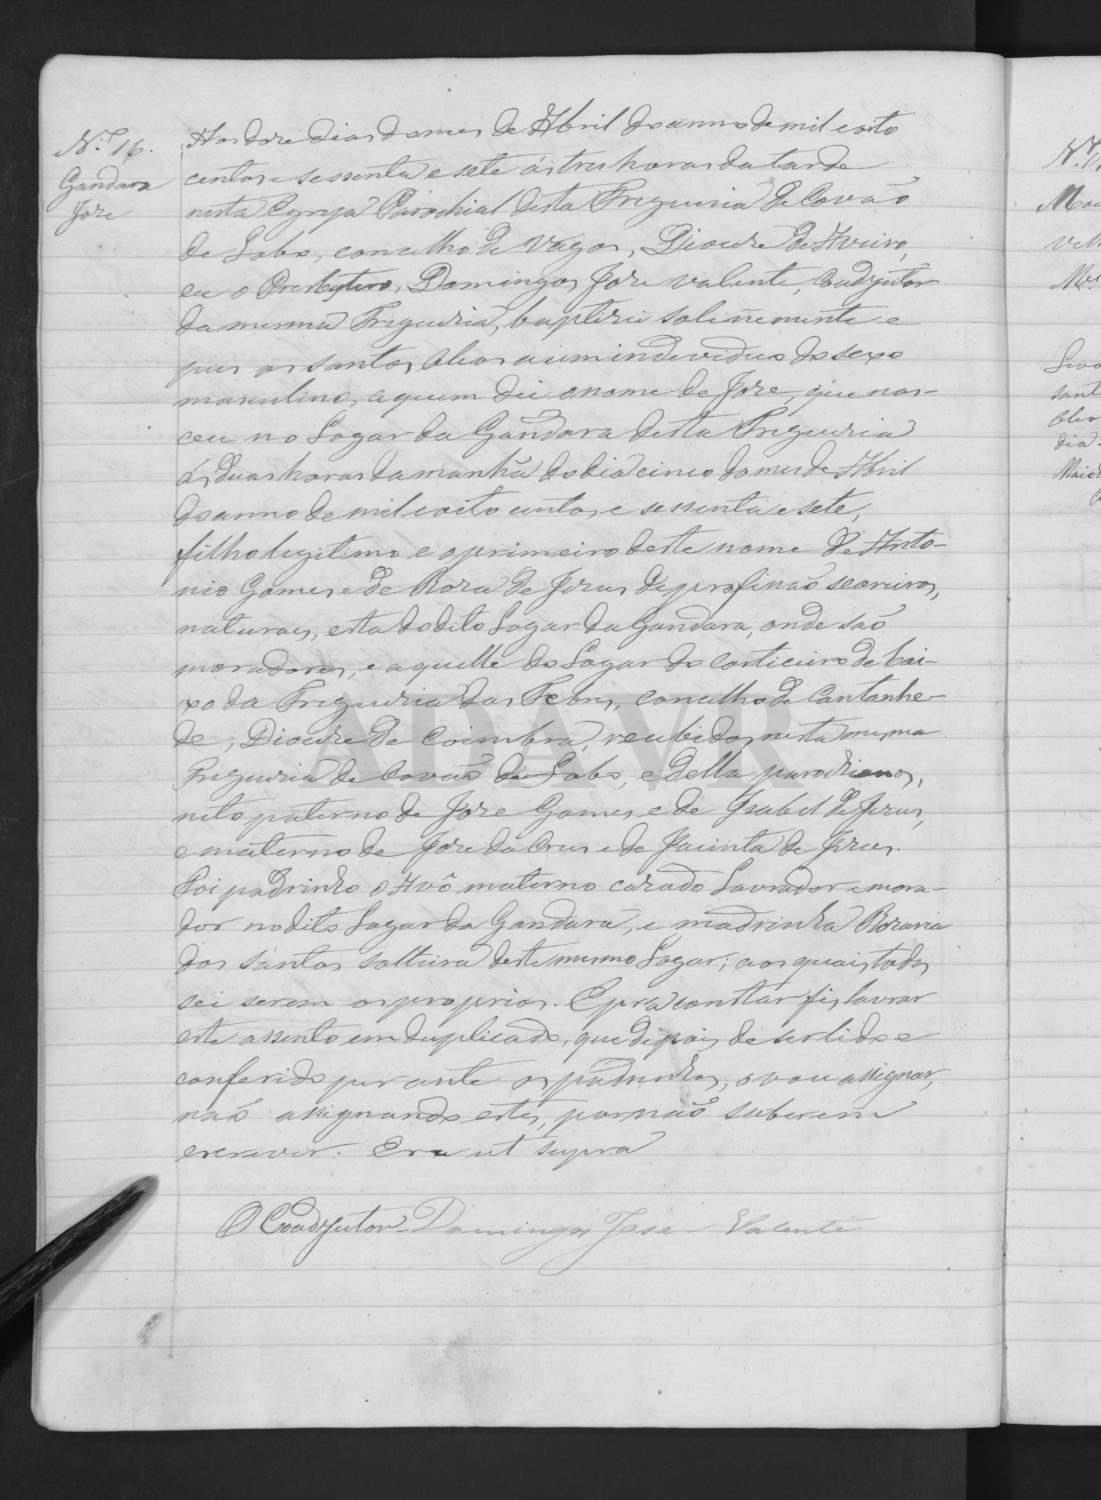 N.º 16.
Gandara
Joze
Aos doze dias do mes de Abril do anno de mil e oito
centos e sessenta e sete ás tres horas da tarde
nesta Egreja Parochial desta Freguezia de Covão
do Lobo, concelho de Vagos, Diocese de Aveiro,
eu o Presbytero, Domingos Joze Valente, Coadjutor
da mesma Freguezia, baptizei solemnemente e
puz os santos Oleos a um individuo do sexo
masculino, a quem dei o nome de Joze, que nas-
ceu no Logar da Gandara desta Freguezia
ás duas horas da manhã do dia cinco do mes de Abril
do anno de mil e oito centos e sessenta e sete,
filho legitimo e o primeiro deste nome de Anto-
nio Gomes e de Roza de Jezus de profissão seareiros,
naturaes, esta do dito Logar da Gandara, onde são
moradores, e aquelle do Logar do Corticeiro de bai-
xo da Freguezia das Febres, concelho de Cantanhe-
de, Diocese de Coimbra, recebidos nesta mesma
Freguezia de Covão do Lobo, e della parochianos,
neto paterno de Joze Gomes e de Isabel de Jezus,
e materno de Joze da Cruz e de Jacinta de Jezus.
Foi padrinho o Avô materno cazado Lavrador e mora-
dor no dito Lugar da Gandara, e madrinha Rozaria
dos Santos solteira deste mesmo Logar; aos quais todos
sei serem os proprios. E para constar fis lavrar
este assento em duplicado, que depois de ser lido e
conferido perante os padrinhos, o vou assignar,
não assignando estes, por não saberem
escrever. Era ut supra
O Coadjutor Domingos Jose Valente
ADAVR